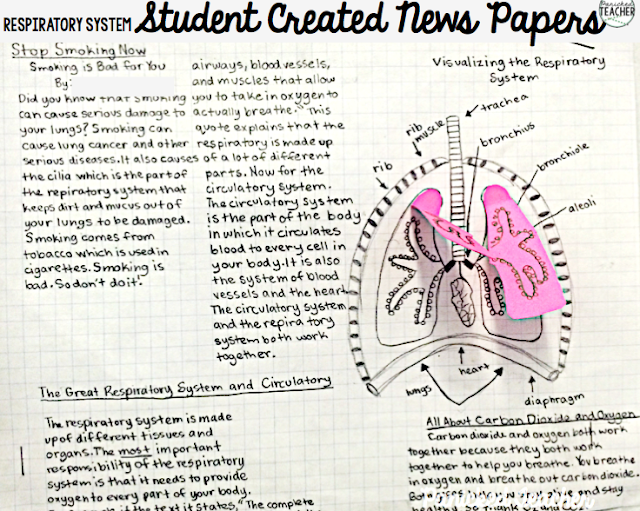 RESPIRATORY SYSTEM Student Created News Papers
TEACHER
Stop Smoking Now
Smoking is Bad for You
By:
Did you know that smoking
can cause serious damage to
your lungs? Smoking can
cause lung cancer and other
serious diseases. It also causes
the cilia which is the part of
the repiratory system that
keeps dirt and mucus out of
your lungs to be damaged.
Smoking comes from
tobacco which is used in
cigarettes. Smoking is
bad. So don't do it!
airways, blood vessels,
and muscles that allow
you to take in oxygen to
actually breathe." This
quote explains that the
respiratory is made up
of a lot of different
parts. Now for the
circulatory system.
The circulatory system
is the part of the body
in which it circulates
blood to every cell in
your body. It is also
the system of blood
vessels and the heart.
The circulatory system
and the repiratory
system both work
together.
Visualizing the Respiratory
System
trachea
rib muscle
bronchius
bronchiole
rib
aleoli
lungs
heart
diaphragm
The Great Respiratory System and Circulatory
The respiratory system is made
up of different tissues and
organs. The most important
responsibility of the respiratory
system is that it needs to provide
oxygen to every part of your body.
the text it states, "The complete
All About Carbon Dioxide and Oxygen
Carbon dioxide and oxygen both work
together because they both work
together to help you breathe. You breathe
in oxygen and breathe out carbon dioxide.